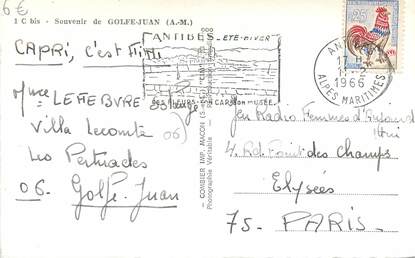 6€
1 C bis - Souvenir de GOLFE-JUAN (A.-M.)
CAPRI, c'est FINI
Mme LEFEBVRE
Villa Lecomte
Les Pertuades
06. Golfe-Juan
ANTIBES
ETE-HIVER
SES FLEURS - SON CAP - SON MUSEE
COMBIER IMP. MACON
Photographie Véritable
17 H
1966
ALPES MARITIMES
0,25
Jeu Radio Femmes d'Aujourd'hui
4. Rd. Point des Champs
Elysées
75- PARIS-